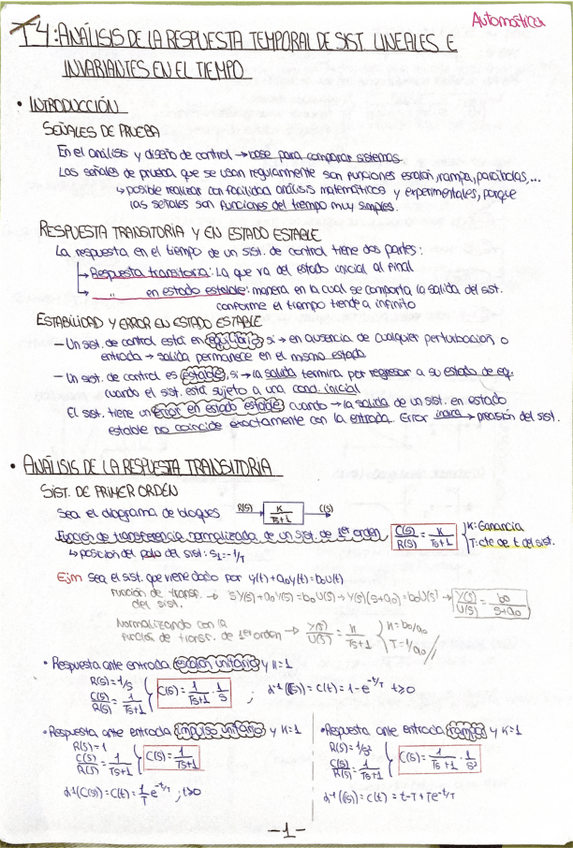 Automática
T4: ANÁLISIS DE LA RESPUESTA TEMPORAL DE SIST. LINEALES E
INVARIANTES EN EL TIEMPO
• INTRODUCCIÓN
SEÑALES DE PRUEBA
En el análisis y diseño de control → base para comparar sistemas.
Las señales de prueba que se usan regularmente son funciones escalón, rampa, parábolas,...
↳ posible realizar con facilidad análisis matemáticos y experimentales, porque
las señales son funciones del tiempo muy simples.
RESPUESTA TRANSITORIA Y EN ESTADO ESTABLE
La respuesta en el tiempo de un sist. de control tiene dos partes:
↳ Respuesta transitoria: La que va del estado inicial al final
↳ " en estado estable: manera en la cual se comporta la salida del sist.
conforme el tiempo tiende a infinito
ESTABILIDAD Y ERROR EN ESTADO ESTABLE
— Un sist. de control está en equilibrio si → en ausencia de cualquier perturbación o
entrada → salida permanece en el mismo estado
— Un sist. de control es estable, si → la salida termina por regresar a su estado de eq.
cuando el sist. está sujeto a una cond. inicial
El sist. tiene un error en estado estable cuando → la salida de un sist. en estado
estable no coincide exactamente con la entrada. Error indica → precisión del sist.
• ANÁLISIS DE LA RESPUESTA TRANSITORIA
SIST. DE PRIMER ORDEN
Sea el diagrama de bloques R(s) → K/Ts+1 → C(s)
Función de transferencia normalizada de un sist. de 1er orden C(s)/R(s) = K/Ts+1 { K: Ganancia
↳ posición del polo del sist: s₁=-1/T T: cte de t del sist.
Ejm Sea el sist. que viene dado por ẏ(t)+a₀y(t)=b₀u(t)
Función de transf. del sist. → sY(s)+a₀Y(s)=b₀U(s) → Y(s)(s+a₀)=b₀U(s) → Y(s)/U(s) = b₀/s+a₀
Normalizando con la
función de transf. de 1er orden → Y(s)/U(s) = K/Ts+1 { K=b₀/a₀ T=1/a₀ //
• Respuesta ante entrada escalón unitario y K=1
R(s)=1/s
C(s)/R(s) = 1/Ts+1 } C(s)= 1/Ts+1 · 1/s ; ℒ⁻¹(C(s))=c(t)=1-e^-t/T t≥0
• Respuesta ante entrada impulso unitario y K=1
R(s)=1
C(s)/R(s) = 1/Ts+1 } C(s)= 1/Ts+1
ℒ⁻¹(C(s))=c(t)=1/T e^-t/T ; t>0
• Respuesta ante entrada rampa y K=1
R(s)=1/s²
C(s)/R(s) = 1/Ts+1 } C(s)= 1/Ts+1 · 1/s²
ℒ⁻¹(C(s))=c(t)=t-T+Te^-t/T
-1-